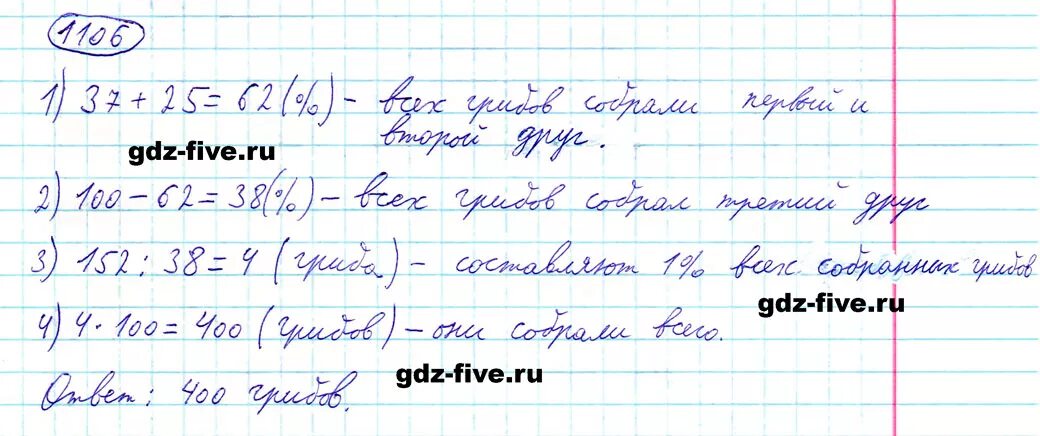 1106
1) 37 + 25 = 62 (%) – всех грибов собрали первый и
второй друг.
gdz-five.ru
2) 100 – 62 = 38 (%) – всех грибов собрал третий друг
3) 152 : 38 = 4 (гриба) – составляют 1% всех собранных грибов
gdz-five.ru
4) 4 · 100 = 400 (грибов) – они собрали всего.
gdz-five.ru
Ответ: 400 грибов.